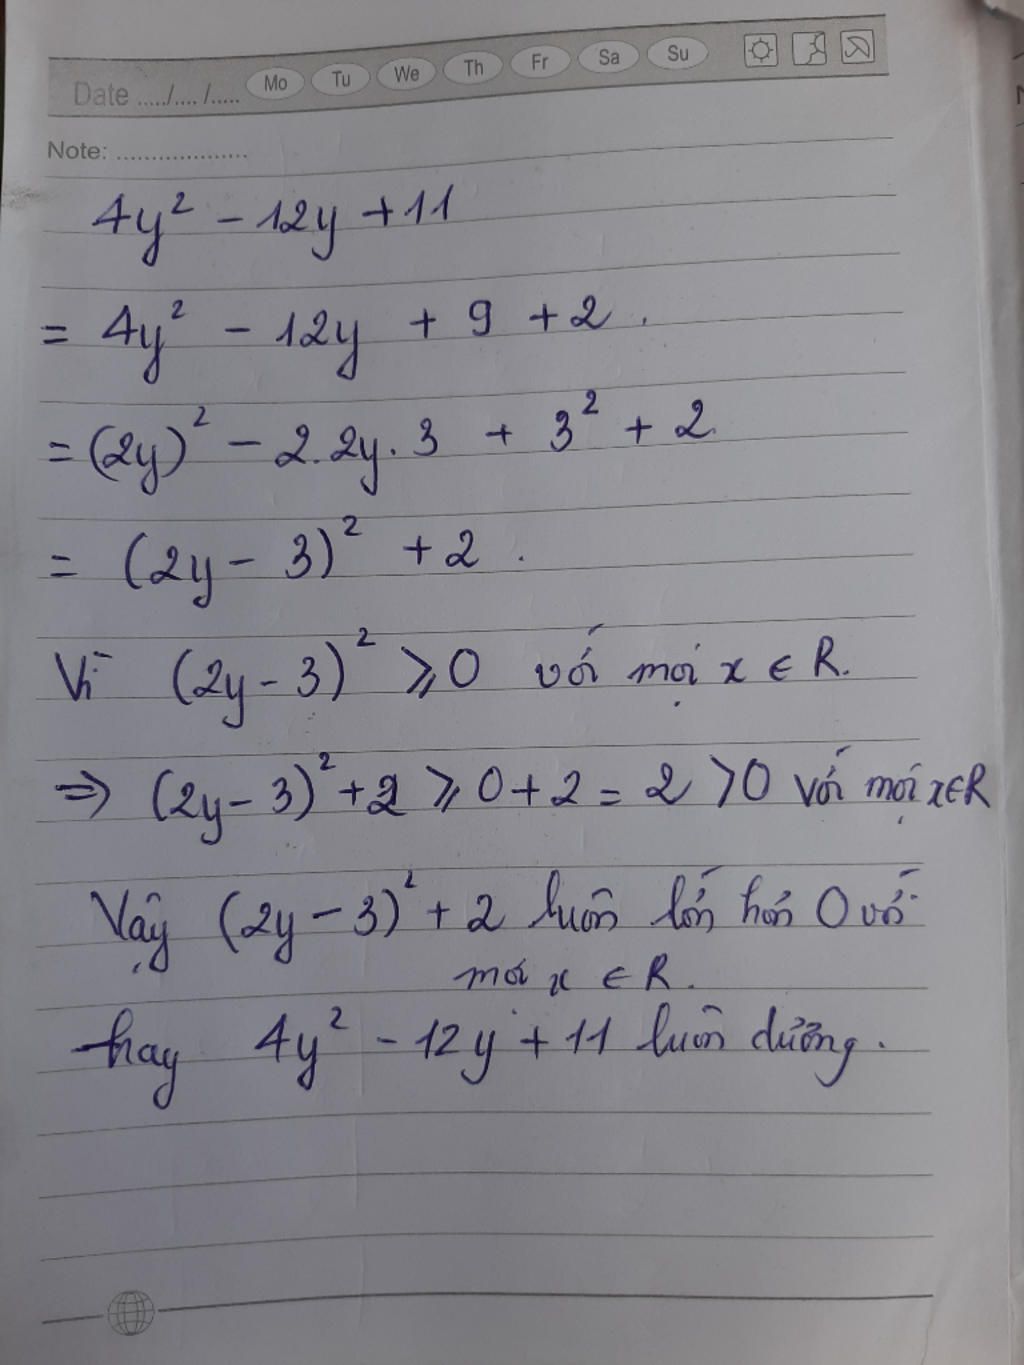 Date ...../..... /..... Mo Tu We Th Fr Sa Su
Note: ...................
4y² - 12y + 11
= 4y² - 12y + 9 + 2.
= (2y)² - 2.2y.3 + 3² + 2.
= (2y - 3)² + 2.
Vì (2y - 3)² ⩾ 0 với mọi x ∈ R.
=> (2y - 3)² + 2 ⩾ 0 + 2 = 2 > 0 với mọi x ∈ R
Vậy (2y - 3)² + 2 luôn lớn hơn 0 với
mọi x ∈ R.
hay 4y² - 12y + 11 luôn dương.